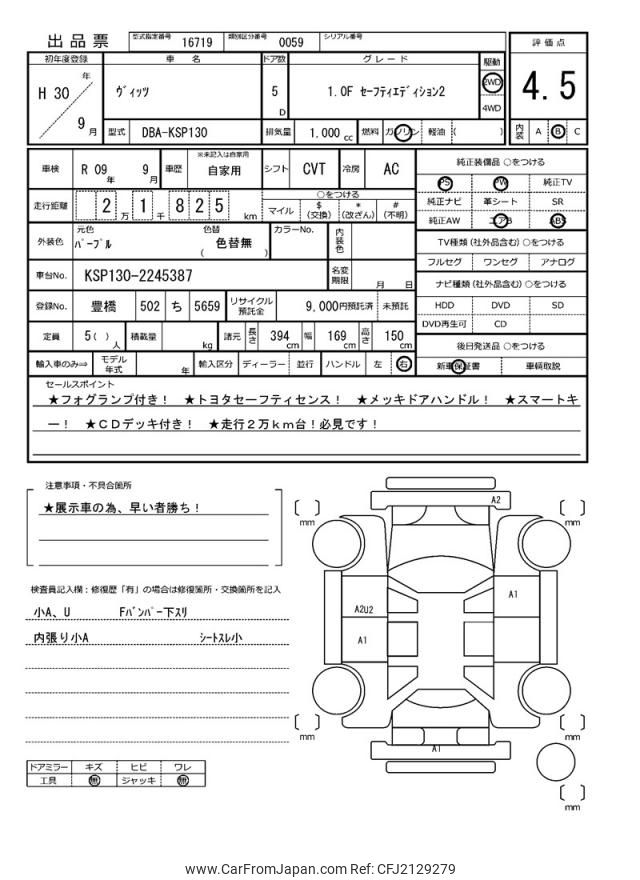 出品票 型式指定番号 16719 類別区分番号 0059 シリアル番号
初年度登録 車名 ドア数 グレード 駆動 評価点
H 30 年 9 月 ヴィッツ 5 D 1.0F セーフティエディション2 2WD 4WD 4.5
型式 DBA-KSP130 排気量 1.000 cc 燃料 ガソリン 軽油 ( ) 内装 A B C
車検 R 09 年 9 月 車歴 ※未記入は自家用 自家用 シフト CVT 冷房 AC 純正装備品 ○をつける
PS PW 純正TV
走行距離 2 万 1 千 8 2 5 km ○をつける
マイル $ (交換) * (改ざん) # (不明)
純正ナビ 革シート SR
純正AW エアB ABS
外装色 元色 パープル 色替 ( 色替無 ) カラーNo. 内装色
TV種類 (社外品含む) ○をつける
フルセグ ワンセグ アナログ
車台No. KSP130-2245387 名変期限 月 日
ナビ種類 (社外品含む) ○をつける
登録No. 豊橋 502 ち 5659 リサイクル預託金 9,000円預託済 未預託
HDD DVD SD
DVD再生可 CD
定員 5( ) 人 積載量 kg 諸元 長さ 394 cm 幅 169 cm 高さ 150 cm
後日発送品 ○をつける
輸入車のみ⇒ モデル年式 年 輸入区分 ディーラー 並行 ハンドル 左 右
新車保証書 車輌取説
セールスポイント
★フォグランプ付き! ★トヨタセーフティセンス! ★メッキドアハンドル! ★スマートキ
ー! ★CDデッキ付き! ★走行2万km台!必見です!
注意事項・不具合箇所
★展示車の為、早い者勝ち!
検査員記入欄:修復歴「有」の場合は修復箇所・交換箇所を記入
小A、U Fバンパー下スリ
内張り小A シートスレ小
ドアミラー キズ ヒビ ワレ
工具 無 ジャッキ 無
A2
mm mm
A1
A2U2
A1
mm mm
A1
mm
www.CarFromJapan.com Ref: CFJ2129279